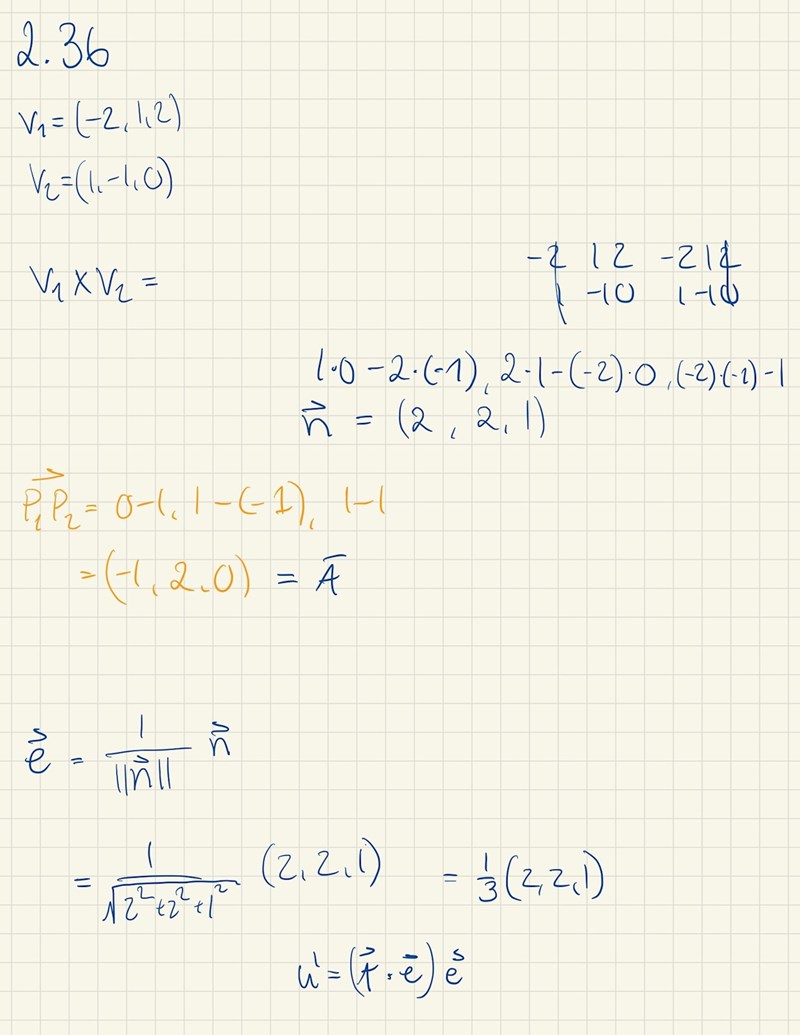 2.36
V₁=(-2,1,2)
V₂=(1,-1,0)
-2 1 2 -2 1 2
V₁ x V₂ =
1 -1 0 1 -1 0
1·0 -2·(-1), 2·1-(-2)·0, (-2)·(-1)-1
n⃗ = (2, 2, 1)
P₁P₂⃗ = 0-1, 1-(-1), 1-1
=(-1, 2, 0) = A̅
e⃗ = 1/||n⃗|| n⃗
= 1/√2²+2²+1² (2,2,1) = 1/3 (2,2,1)
u' = (A⃗ · e̅) e⃗